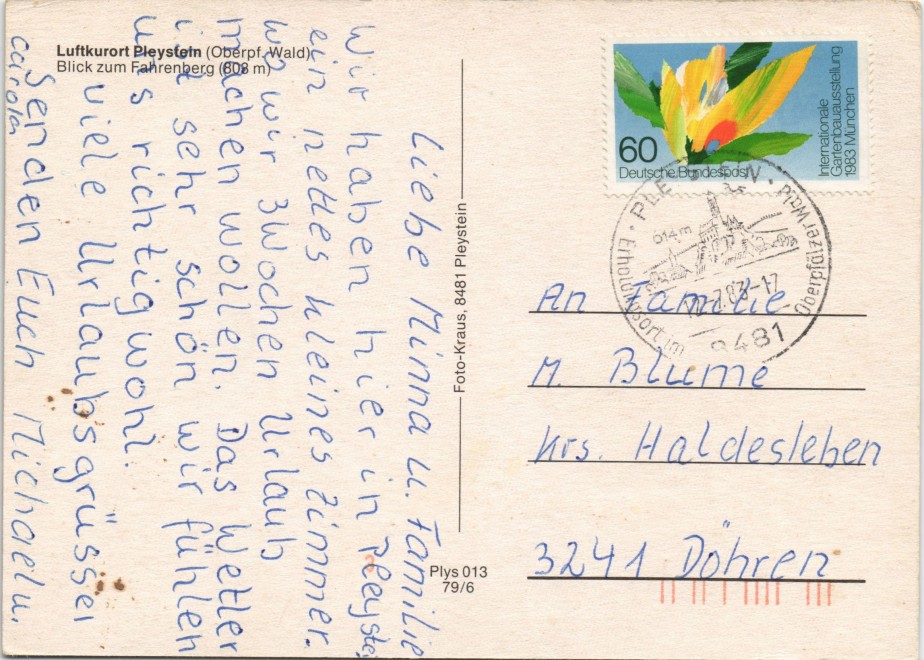 Luftkurort Pleystein (Oberpf. Wald)
Blick zum Fahrenberg (808 m)
Liebe Minna u. Familie
Wir haben hier in Pleystei
ein nettes kleines Zimmer.
wo wir 3 Wochen Urlaub
machen wollen. Das Wetter
ist sehr schön wir fühlen
uns richtig wohl.
viele Urlaubsgrüsse
Senden Euch Michael u.
Carola
Foto-Kraus, 8481 Pleystein
Plys 013
79/6
60
Deutsche Bundespost
Internationale
Gartenbauausstellung
1983 München
PLEYSTEIN
Erholungsort im
Oberpfälzer Wald
614m
.83-17
8481
An Familie
M. Blume
Krs. Haldesleben
3241 Döhren